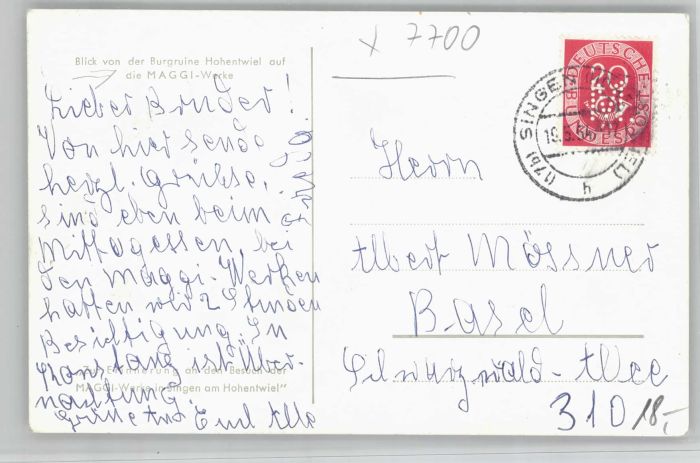 x 7700
Blick von der Burgruine Hohentwiel auf
die MAGGI-Werke
Lieber Bruder!
Von hier sende
herzl. Grüße,
sind eben beim
Mittagessen, bei
den Maggi-Werken
hatten wir 2 Stunden
Besichtigung. In
Konstanz ist Über-
nachtung.
"Zur Erinnerung an den Besuch der
MAGGI-Werke in Singen am Hohentwiel"
Grüße
Alle
DEUTSCHE
BUNDESPOST
20
(17b) SINGEN
h
Herrn
Albert Mössner
Basel
Schwarzwald-Allee
310
18,-